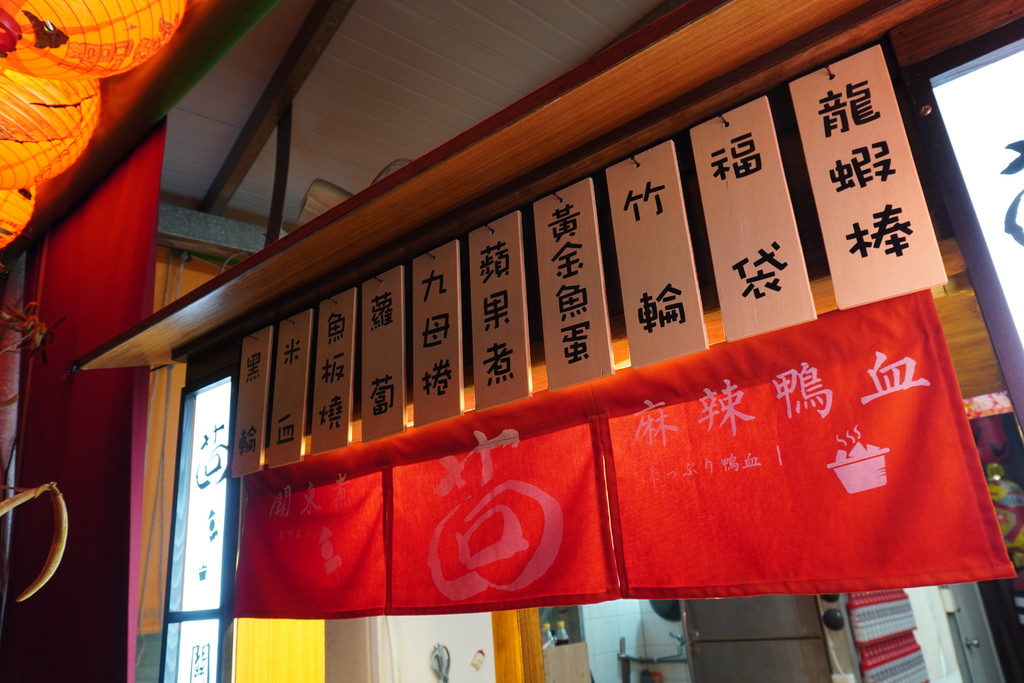 黑輪
米血
魚板燒
蘿蔔
九母捲
蘋果煮
黃金魚蛋
竹輪
福袋
龍蝦棒
關東煮
茴
麻辣鴨血
たっぷり鴨血
茴
關